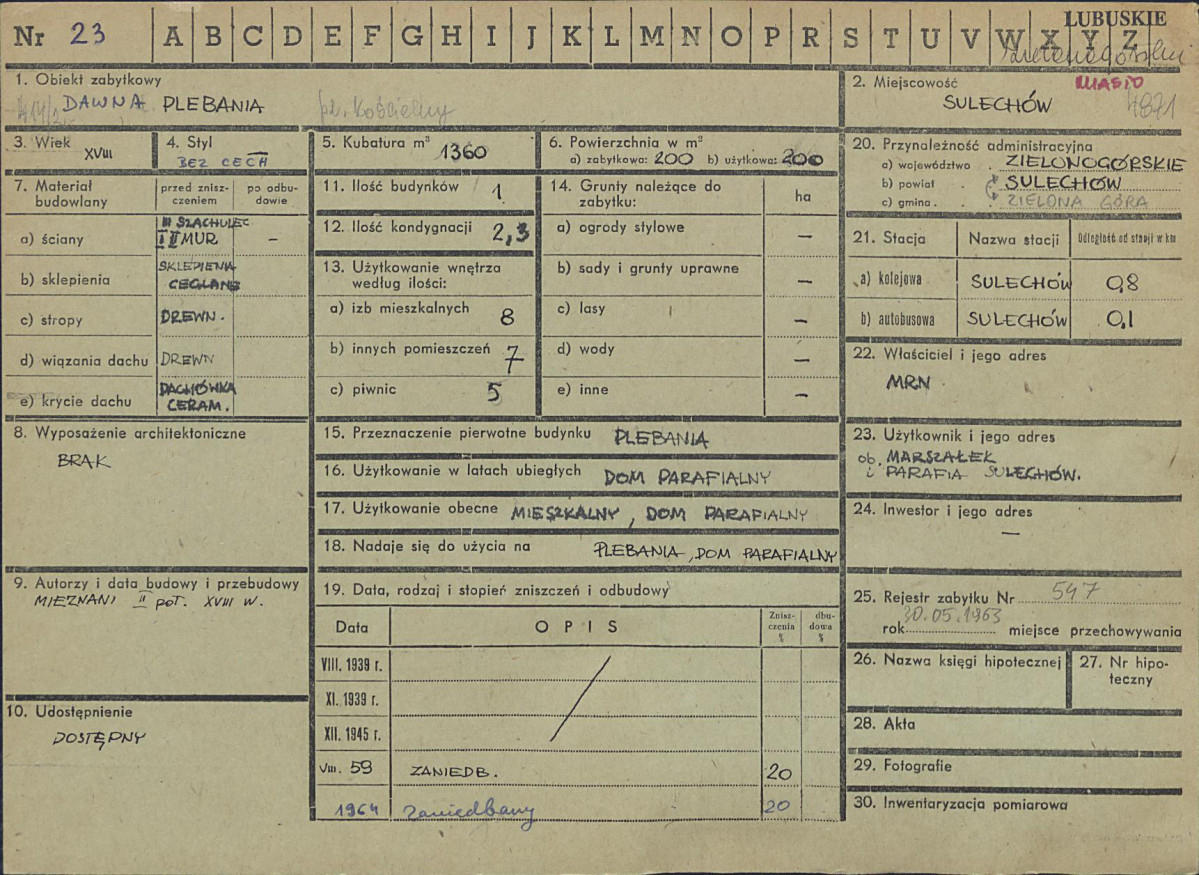 LUBUSKIE
Nr 23 A B C D E F G H I J K L M N O P R S T U V W X Y Z
1. Obiekt zabytkowy
DAWNA PLEBANIA pl. Kościelny
2. Miejscowość MIASTO
SULECHÓW 4871
3. Wiek XVIII
4. Styl
BEZ CECH
5. Kubatura m³ 1360
6. Powierzchnia w m²
a) zabytkowa: 200 b) użytkowa: 200
7. Materiał budowlany
przed zniszczeniem
po odbudowie
a) ściany
III SZACHULEC
I II MUR. –
b) sklepienia
SKLEPIENIA
CEGLANE
c) stropy DREWN.
d) wiązania dachu DREWN
e) krycie dachu
DACHÓWKA
CERAM.
8. Wyposażenie architektoniczne
BRAK
9. Autorzy i data budowy i przebudowy
MIEZNANI II POŁ. XVIII W.
10. Udostępnienie
DOSTĘPNY
11. Ilość budynków 1
12. Ilość kondygnacji 2,3
13. Użytkowanie wnętrza
według ilości:
a) izb mieszkalnych 8
b) innych pomieszczeń 7
c) piwnic 5
14. Grunty należące do
zabytku: ha
a) ogrody stylowe –
b) sady i grunty uprawne –
c) lasy –
d) wody –
e) inne –
15. Przeznaczenie pierwotne budynku PLEBANIA
16. Użytkowanie w latach ubiegłych DOM PARAFIALNY
17. Użytkowanie obecne MIESZKALNY, DOM PARAFIALNY
18. Nadaje się do użycia na PLEBANIA, DOM PARAFIALNY
19. Data, rodzaj i stopień zniszczeń i odbudowy
Data OPIS Zniszczenia % dbudowa %
VIII. 1939 r.
XI. 1939 r.
XII. 1945 r.
VIII. 59 ZANIEDB. 20
1964 Zaniedbany 20
20. Przynależność administracyjna
a) województwo . ZIELONOGÓRSKIE
b) powiat . SULECHÓW
c) gmina . ZIELONA GÓRA
21. Stacja Nazwa stacji Odległość od stacji w km
a) kolejowa SULECHÓW 0,8
b) autobusowa SULECHÓW 0,1
22. Właściciel i jego adres
MRN
23. Użytkownik i jego adres
ob. MARSZAŁEK
i PARAFIA SULECHÓW.
24. Inwestor i jego adres
—
25. Rejestr zabytku Nr 547
rok 30.05.1963 miejsce przechowywania
26. Nazwa księgi hipotecznej
27. Nr hipoteczny
28. Akta
29. Fotografie
30. Inwentaryzacja pomiarowa